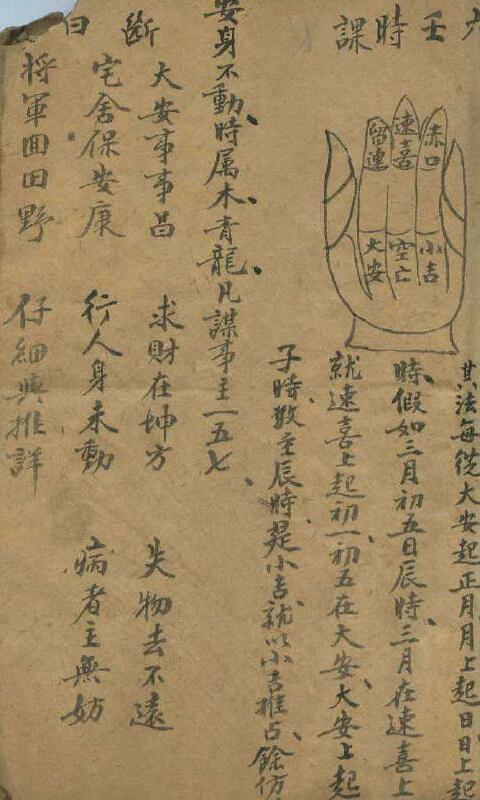 六壬時課
留連
速喜
赤口
大安
空亡
小吉
其法每從大安起正月月上起日日上起
時假如三月初五日辰時三月在速喜上
就速喜上起初一初五在大安大安上起
子時数至辰時是小吉就以小吉推占餘仿
安身不動時属木青龍凡謀事主一五七
断曰
大安事事昌 求財在坤方 失物去不遠
宅舍保安康 行人身未動 病者主無妨
将軍回田野 仔細與推詳